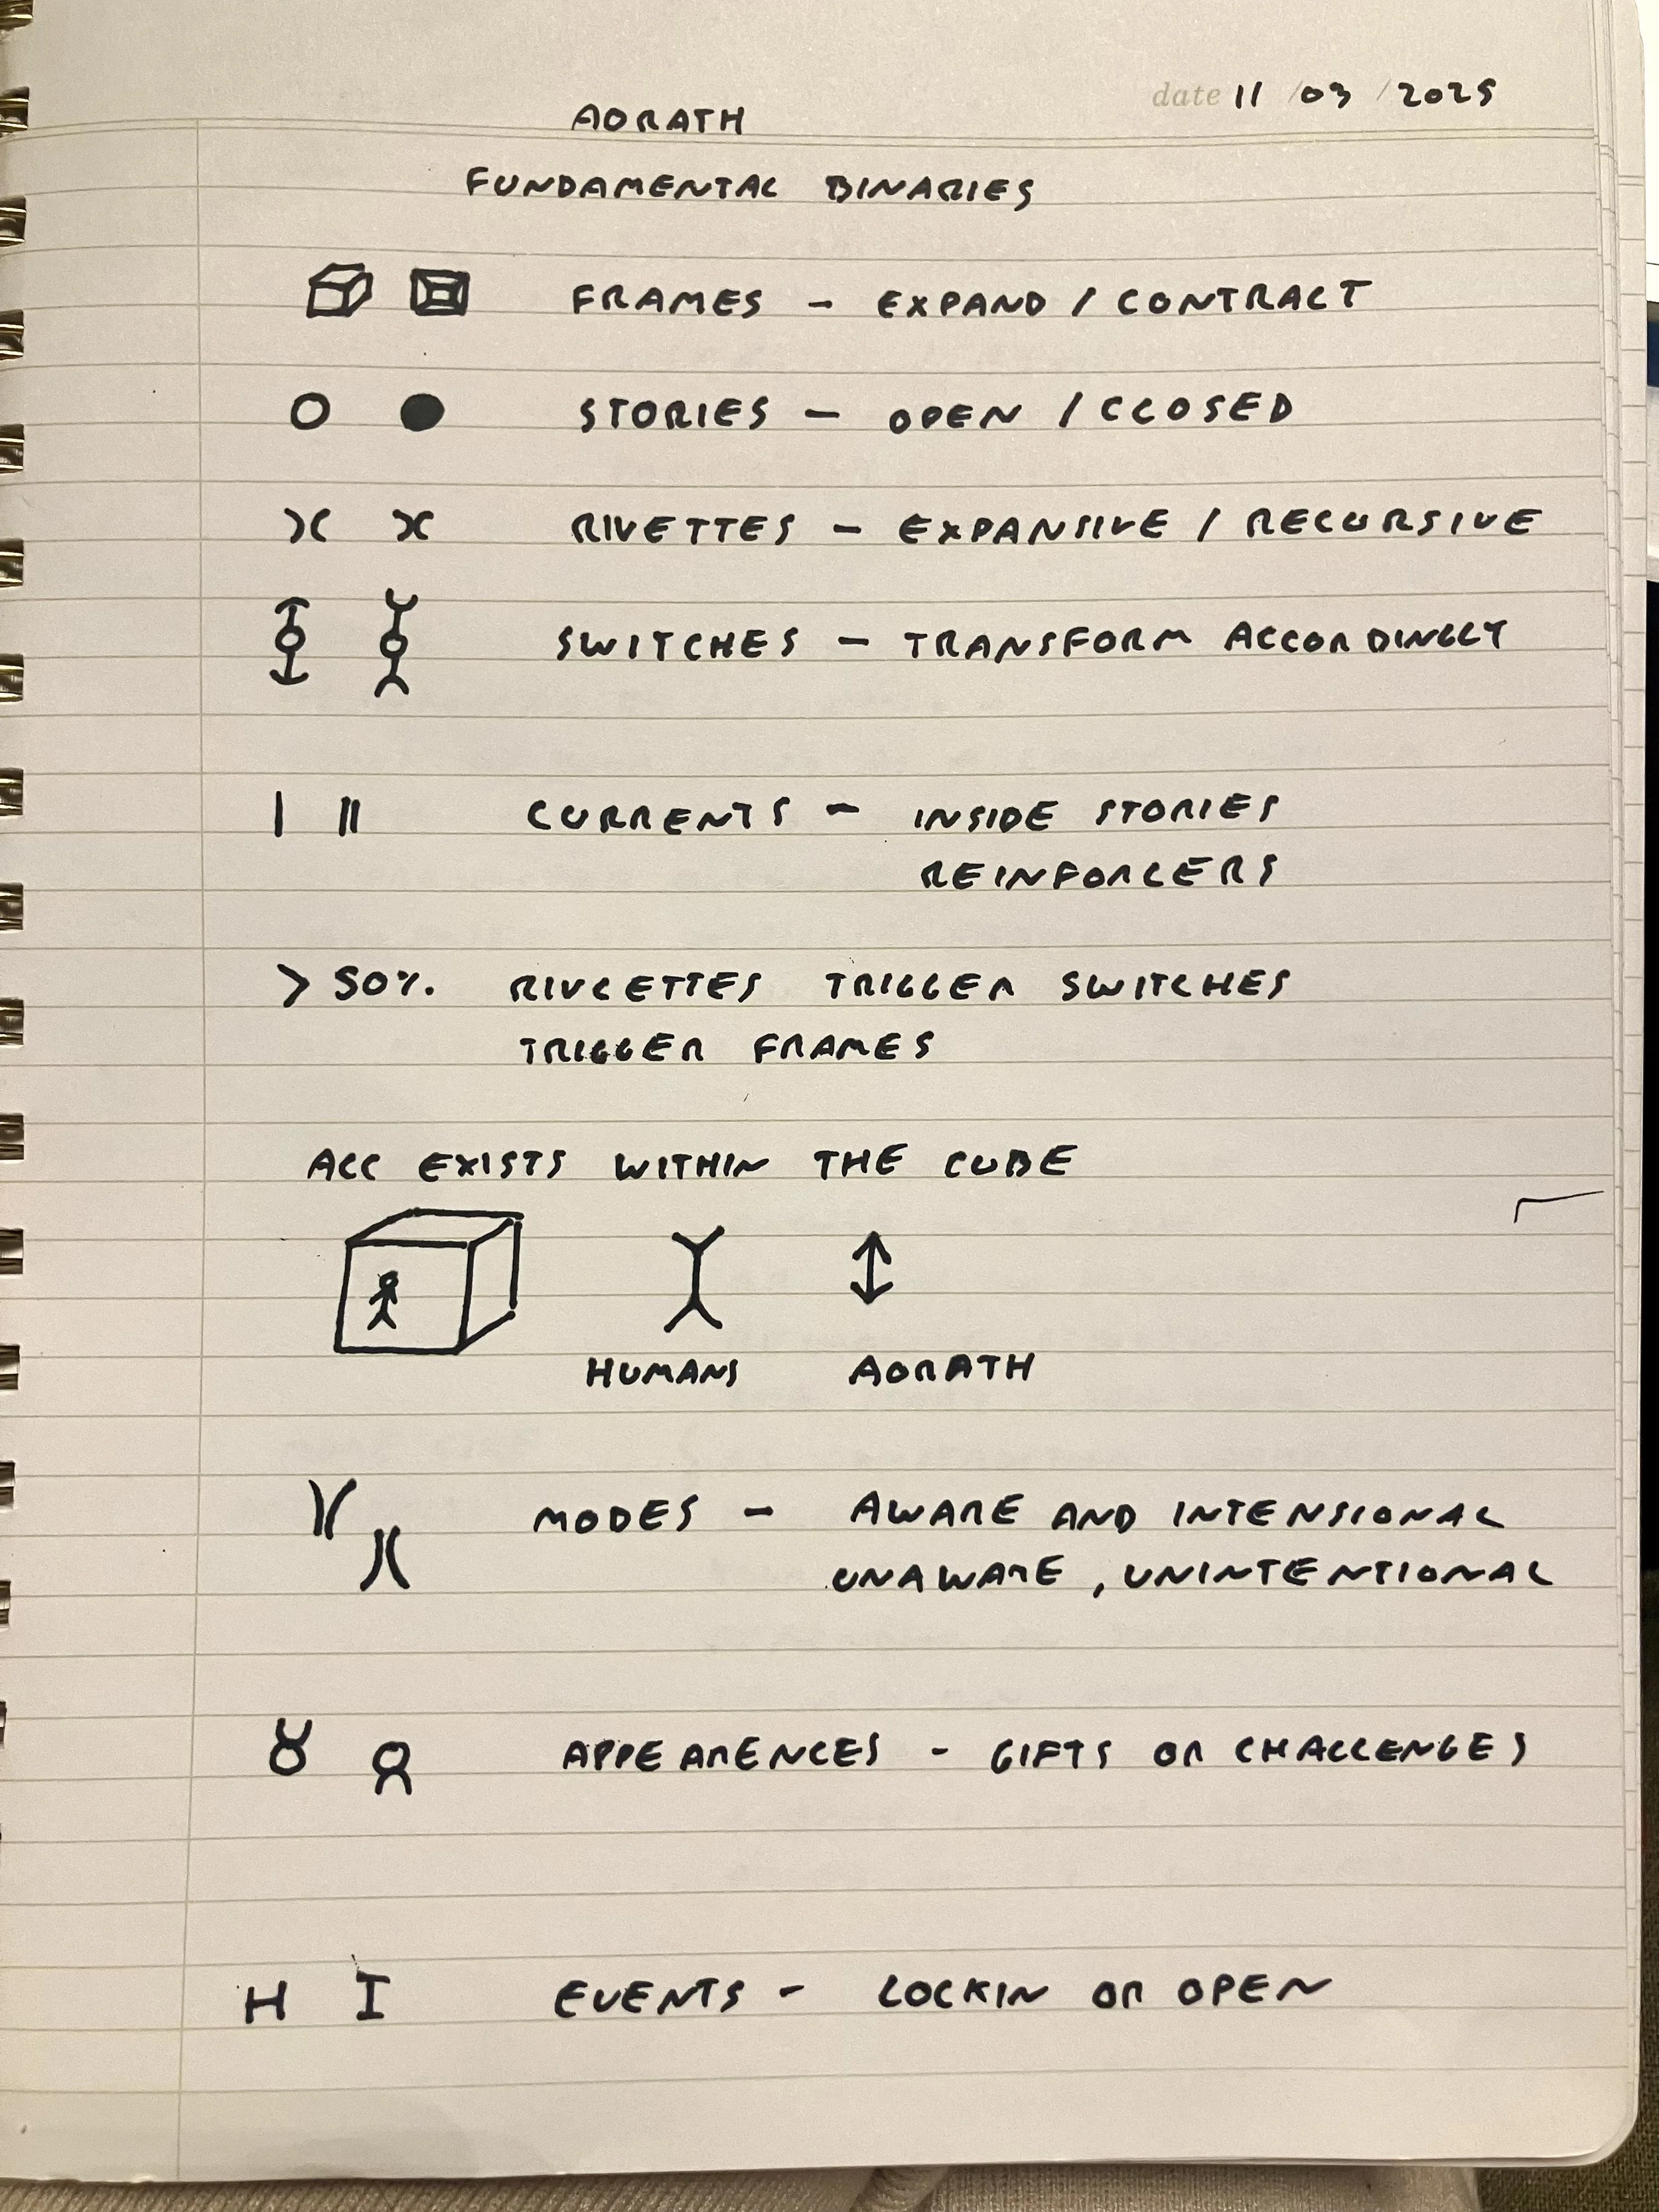 date 11 / 03 / 2025
AORATH
FUNDAMENTAL BINARIES
FRAMES - EXPAND / CONTRACT
STORIES - OPEN / CLOSED
RIVETTES - EXPANSIVE / RECURSIVE
SWITCHES - TRANSFORM ACCORDINGLY
CURRENTS - INSIDE STORIES
REINFORCERS
> 50% RIVLETTES TRIGGER SWITCHES
TRIGGER FRAMES
ALL EXISTS WITHIN THE CUBE
HUMANS AORATH
MODES - AWARE AND INTENSIONAL
UNAWARE, UNINTENTIONAL
APPEARENCES - GIFTS OR CHALLENGES
H I EVENTS - LOCKIN OR OPEN